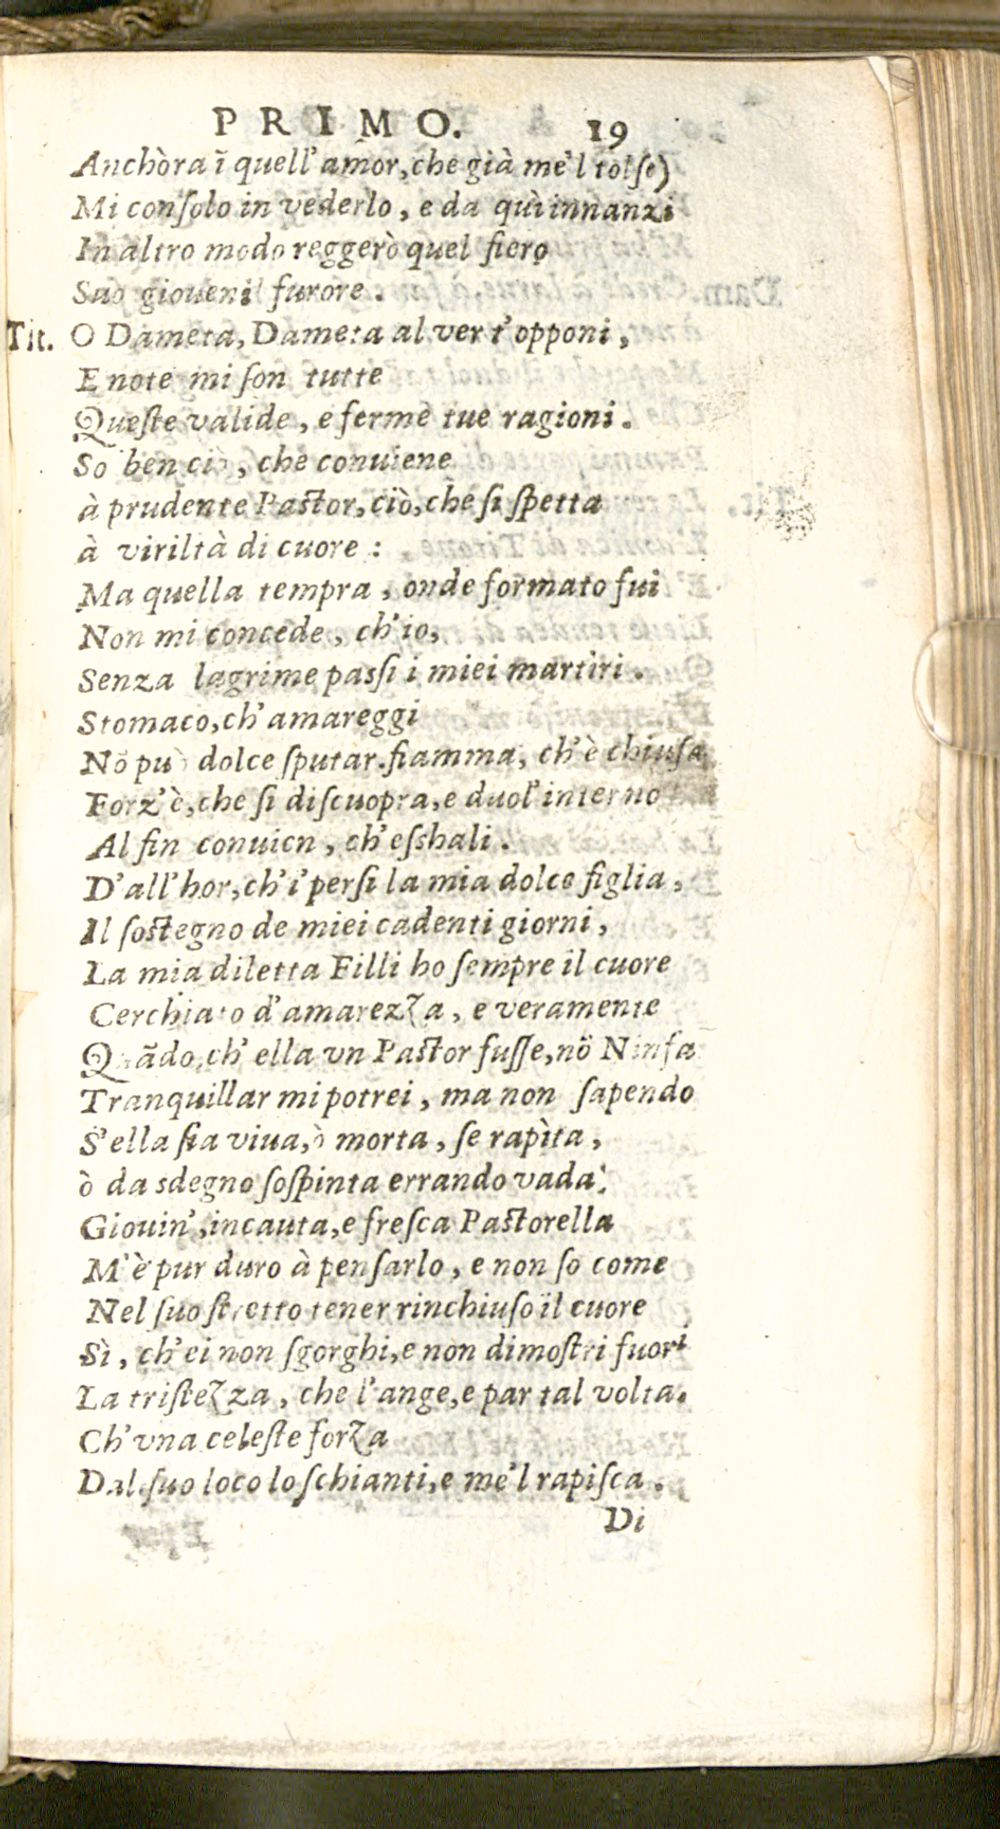 PRIMO. 19
Anchòra ĩ quell'amor, che già me'l tolse)
Mi conſolo in vederlo, e da quì innanzi
In altro modo reggerò quel fiero
Suo giouenil furore.
Tit. O Dameta, Dameta al ver t'opponi,
E note mi ſon tutte
Queſte valide, e ferme tue ragioni.
So ben ciò, che conuiene
à prudente Paſtor, ciò, che ſi ſpetta
à viriltà di cuore:
Ma quella tempra, onde formato fui
Non mi concede, ch'io,
Senza lagrime paſsi i miei martiri.
Stomaco, ch'amareggi
Nõ può dolce ſputar. fiamma, ch'è chiuſa
Forz'è, che ſi diſcuopra, e duol'interno
Al fin conuien, ch'eſshali.
D'all'hor, ch'i' perſi la mia dolce figlia,
Il ſoſtegno de miei cadenti giorni,
La mia diletta Filli ho ſempre il cuore
Cerchiato d'amarezza, e veramente
Quãdo, ch'ella vn Paſtor fuſſe, nõ Ninfa
Tranquillar mi potrei, ma non ſapendo
S'ella ſia viua, ò morta, ſe rapìta,
ò da sdegno ſoſpinta errando vada;
Giouin', incauta, e freſca Paſtorella
M'è pur duro à penſarlo, e non ſo come
Nel ſuo ſtretto tener rinchiuſo il cuore
Sì, ch'ei non ſgorghi, e non dimoſtri fuori
La triſtezza, che l'ange, e par tal volta.
Ch'vna celeſte forza
Dal ſuo loco lo ſchianti, e me'l rapiſca.
Di